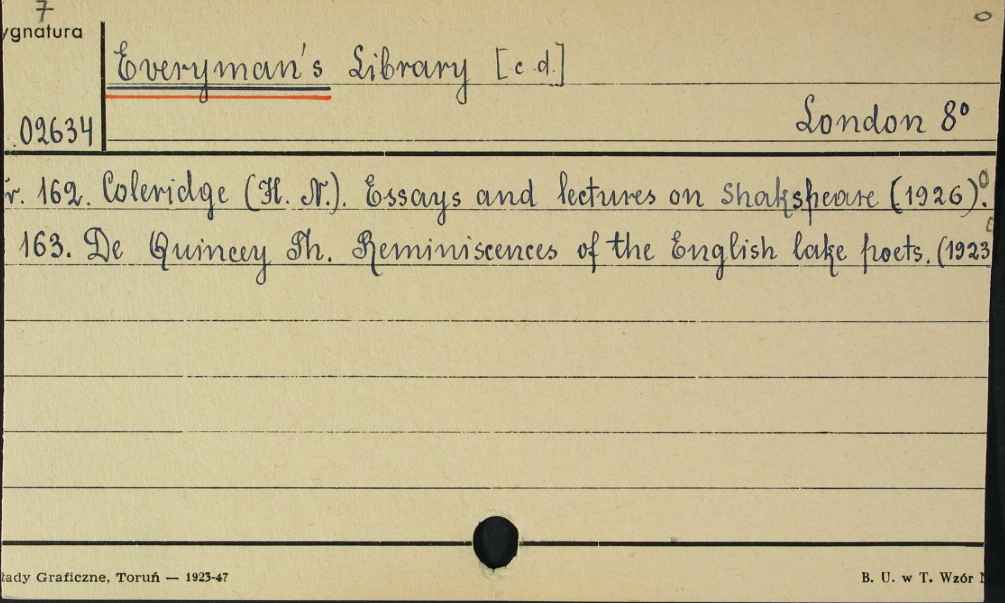 7
ygnatura
Everyman's Library [c.d.]
02634
London 8°
r. 162. Coleridge (H. N.). Essays and lectures on Shakspeare (1926).
163. De Quincey Th. Reminiscences of the English lake poets. (1923
łady Graficzne, Toruń — 1923-47
B. U. w T. Wzór